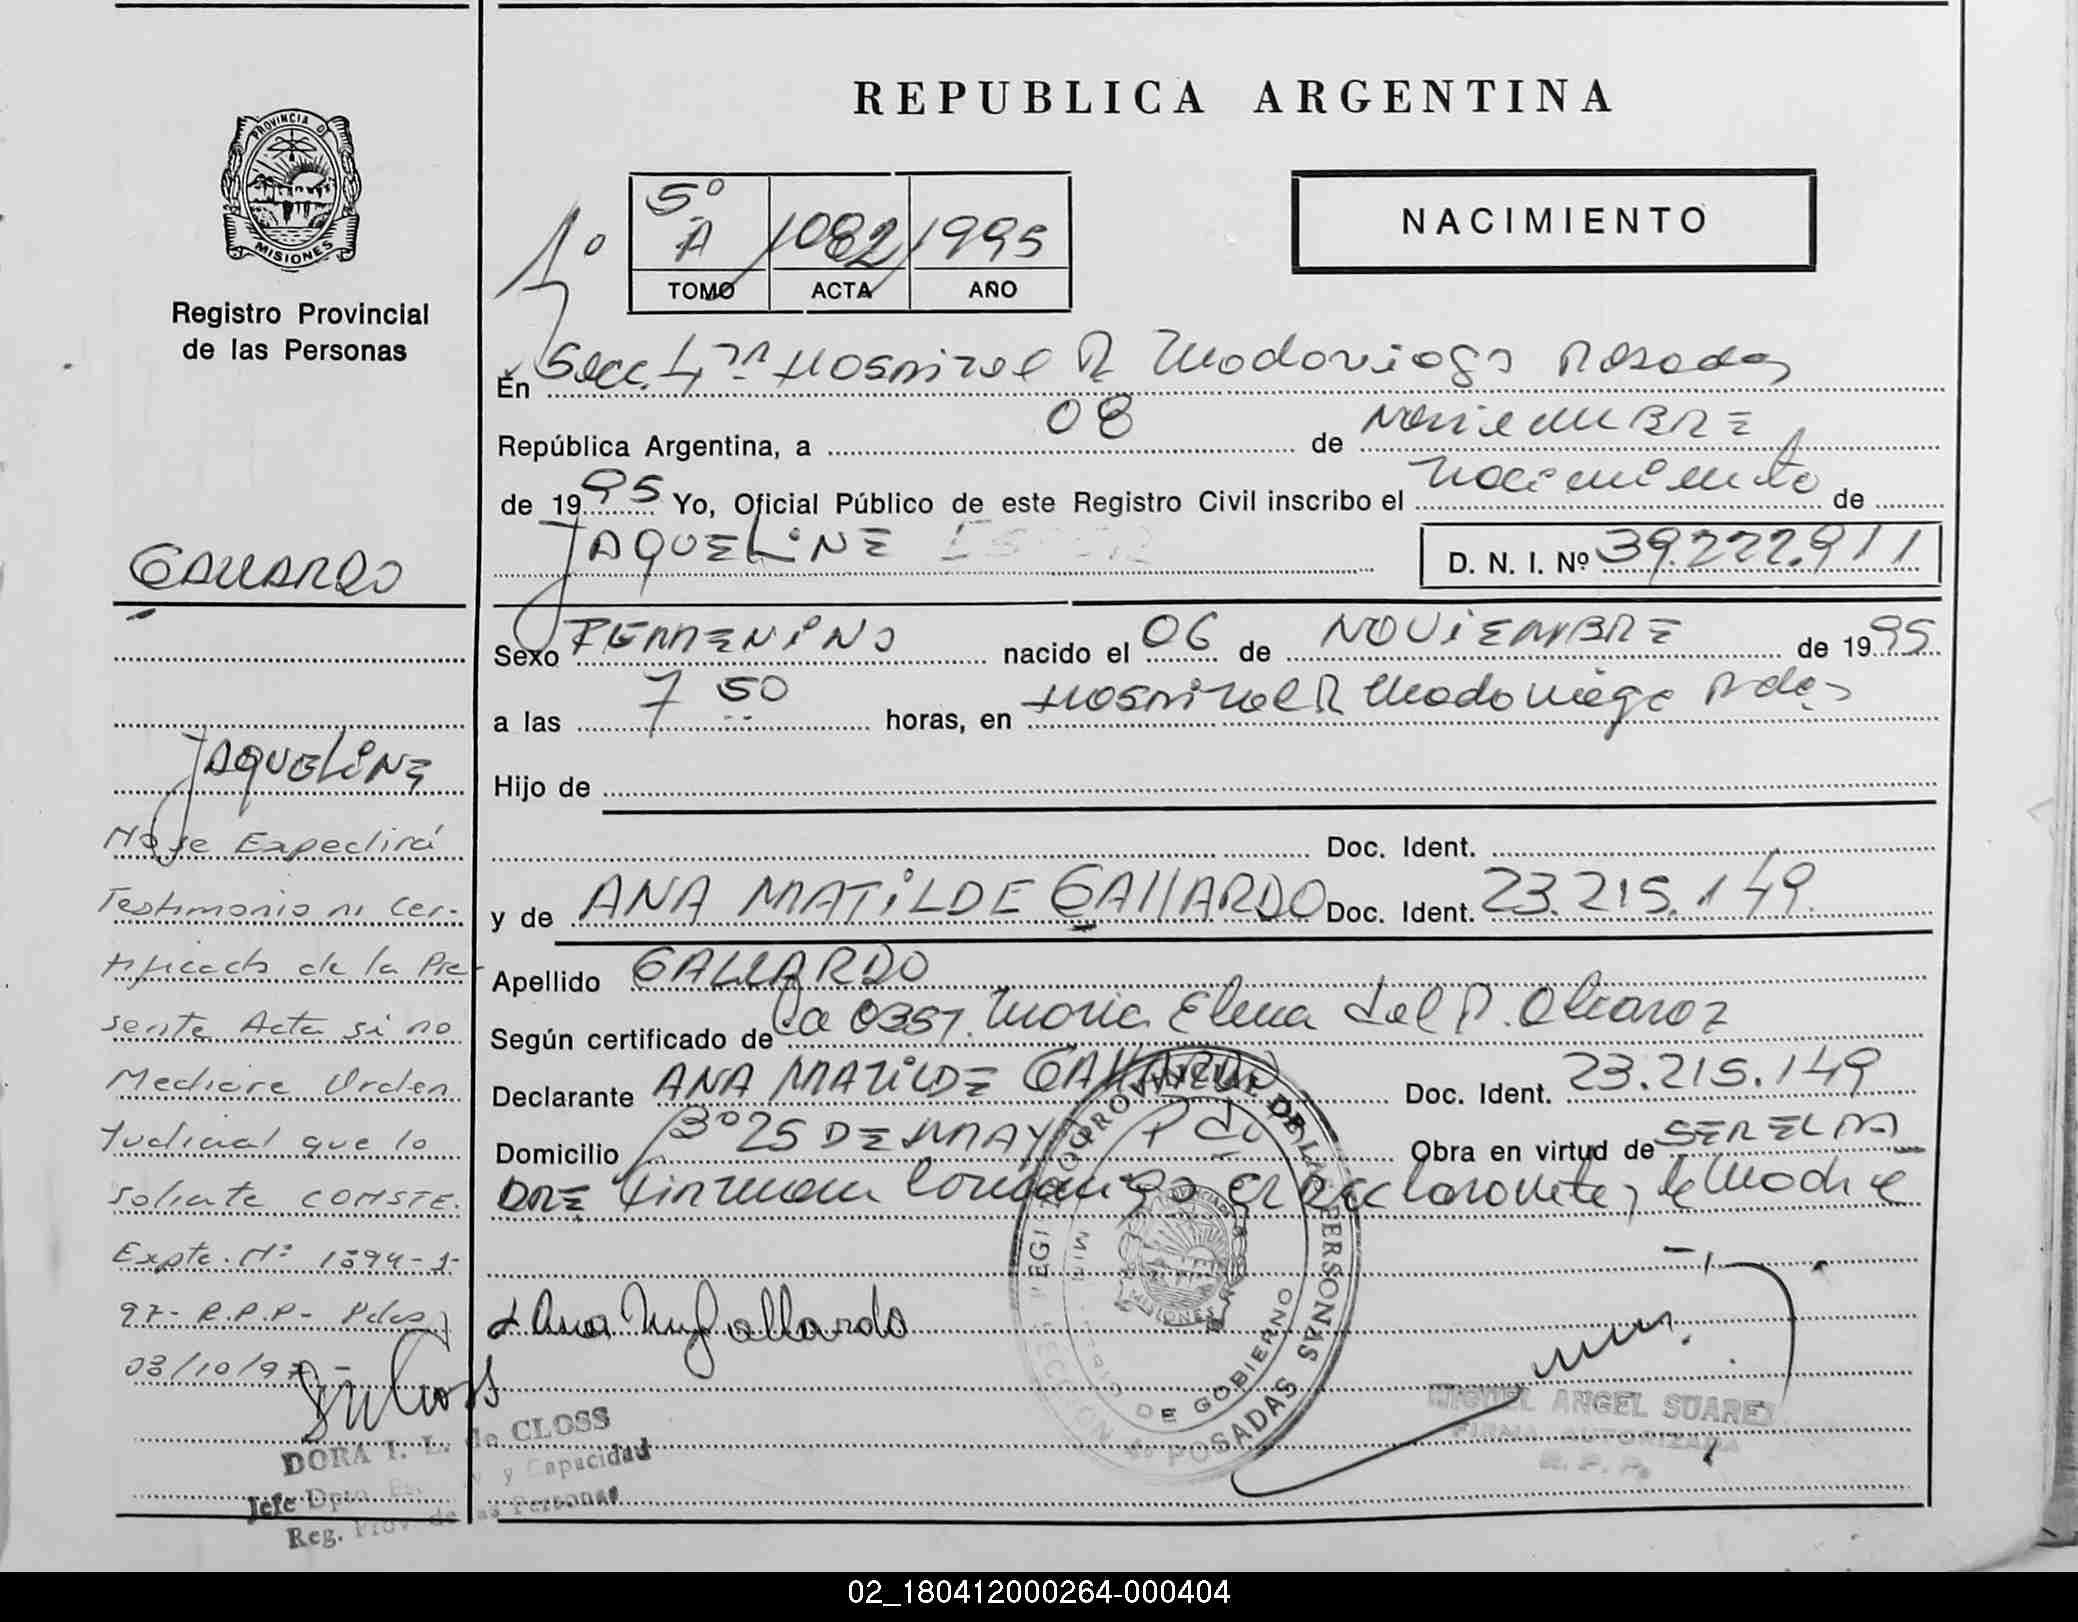 REPUBLICA ARGENTINA
PROVINCIA DE
MISIONES
Registro Provincial
de las Personas
1º
5º
A 1082 1995
TOMO ACTA AÑO
NACIMIENTO
En Secc. 4ta Hospital R Madariaga Posadas
República Argentina, a 08 de Noviembre
de 1995 Yo, Oficial Público de este Registro Civil inscribo el nacimiento de
JAQUELINE
D. N. I. Nº 39.222.911
Sexo FEMENINO nacido el 06 de NOVIEMBRE de 1995
a las 7 50 horas, en Hospital R Madariaga Pdas
Hijo de
Doc. Ident.
y de ANA MATILDE GALLARDO Doc. Ident. 23.215.149
Apellido GALLARDO
Según certificado de La Obst. Maria Elena del P. Alcaraz
Declarante ANA MATILDE GALLARDO Doc. Ident. 23.215.149
Domicilio Bº 25 DE MAYO Pdas Obra en virtud de SER EL MA
DRE Firman conmigo el declarante, la Madre
Ana M Gallardo
GALLARDO
JAQUELINE
No se Expedirá
Testimonio ni Cer-
tificado de la Pre-
sente Acta si no
Mediare Orden
Judicial que lo
solicite CONSTE.
Expte. Nº 1394-J-
97- R.P.P- Pdas
03/10/97-
DORA I. L. de CLOSS
Jefe Dpto. y Capacidad
Reg. Prov. de las Personas
REGISTRO PROVINCIAL DE LAS PERSONAS
MINISTERIO DE GOBIERNO
SECCION 4a POSADAS
MISIONES
MIGUEL ANGEL SUAREZ
FIRMA AUTORIZADA
R. P. P.
02_180412000264-000404